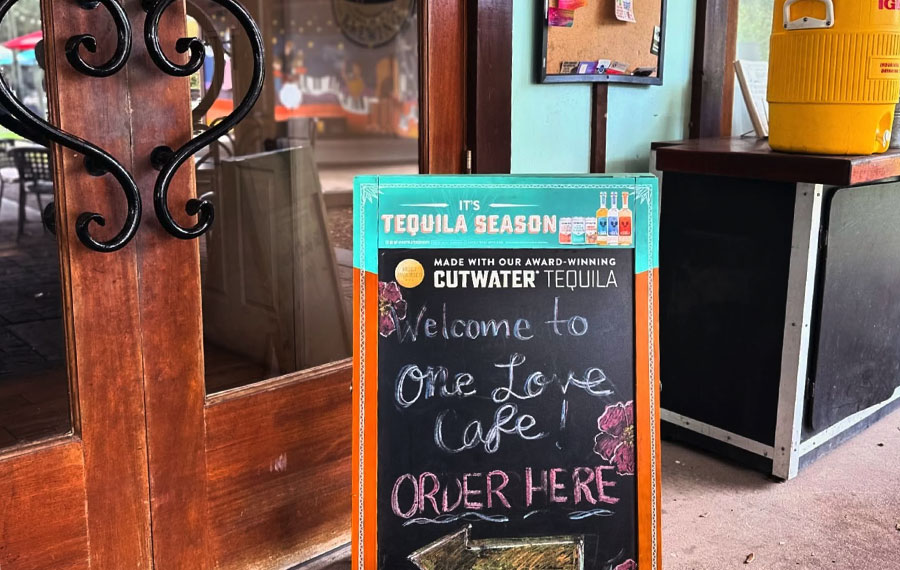 IT'S
TEQUILA SEASON
MADE WITH OUR AWARD-WINNING
CUTWATER TEQUILA
Welcome to
One Love
Cafe!
ORDER HERE